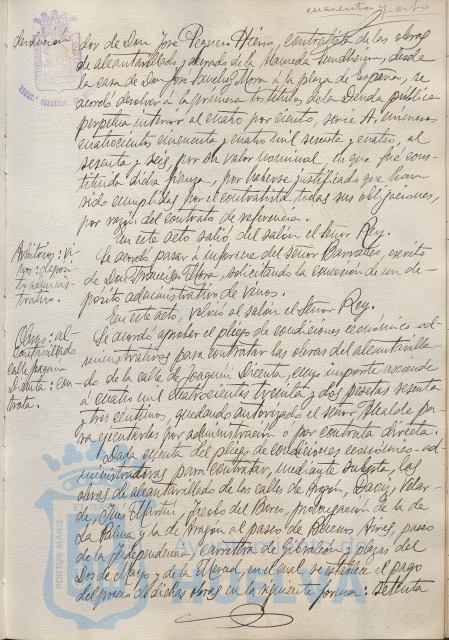 cuarenta y ocho
devolución
dor de Don José Peguero Hierro, contratista de las obras
de alcantarillado y adoquinado de la Alameda Sundheim, desde
la casa de Don José Sánchez Mora a la plaza de España, se
acordó devolver a la primera los títulos de la Deuda pública
perpetua interior al cuatro por ciento, serie A, números
cuatrocientos cincuenta y cuatro mil sesenta y cuatro, al
sesenta y seis, por su valor nominal en que fué cons-
tituida dicha fianza, por haberse justificado que han
sido cumplidas por el contratista todas sus obligaciones,
por razón del contrato de referencia.
En este acto salió del salón el Señor Rey.
Arbitrios: vi-
nos: depósi-
to adminis-
trativo.
Se acordó pasar á informe del señor Barrades, escrito
de Don Francisco Mora, solicitando la concesión de un de-
pósito administrativo de vinos.
En este acto, volvió al salón el Señor Rey.
Obras: al-
cantarillado
calle Joaquín
Dicenta: con-
trata.
Se acordó aprobar el pliego de condiciones económico-ad-
ministrativas para contratar las obras del alcantarilla-
do de la calle de Joaquín Dicenta, cuyo importe asciende
á cuatro mil cuatrocientas treinta y dos pesetas sesenta
y tres céntimos, quedando autorizado el señor Alcalde pa-
ra ejecutarlas por administración o por contrata directa.
Dada cuenta del pliego de condiciones económico-ad-
ministrativas para contratar, mediante subasta, las
obras de alcantarillado de las calles de Aragón, Daoiz, Velar-
de, prolongación de la de
La Palma y la de Aragón al paseo de Buenos Aires, paseo
de la Independencia, carretera de Gibraleón y plazas del
Dos de Mayo y de la Merced, en el cual se establece el pago
del precio de dichas obras en la siguiente forma: setenta
PORTUS MARIS
Ayuntamiento de
HUELVA